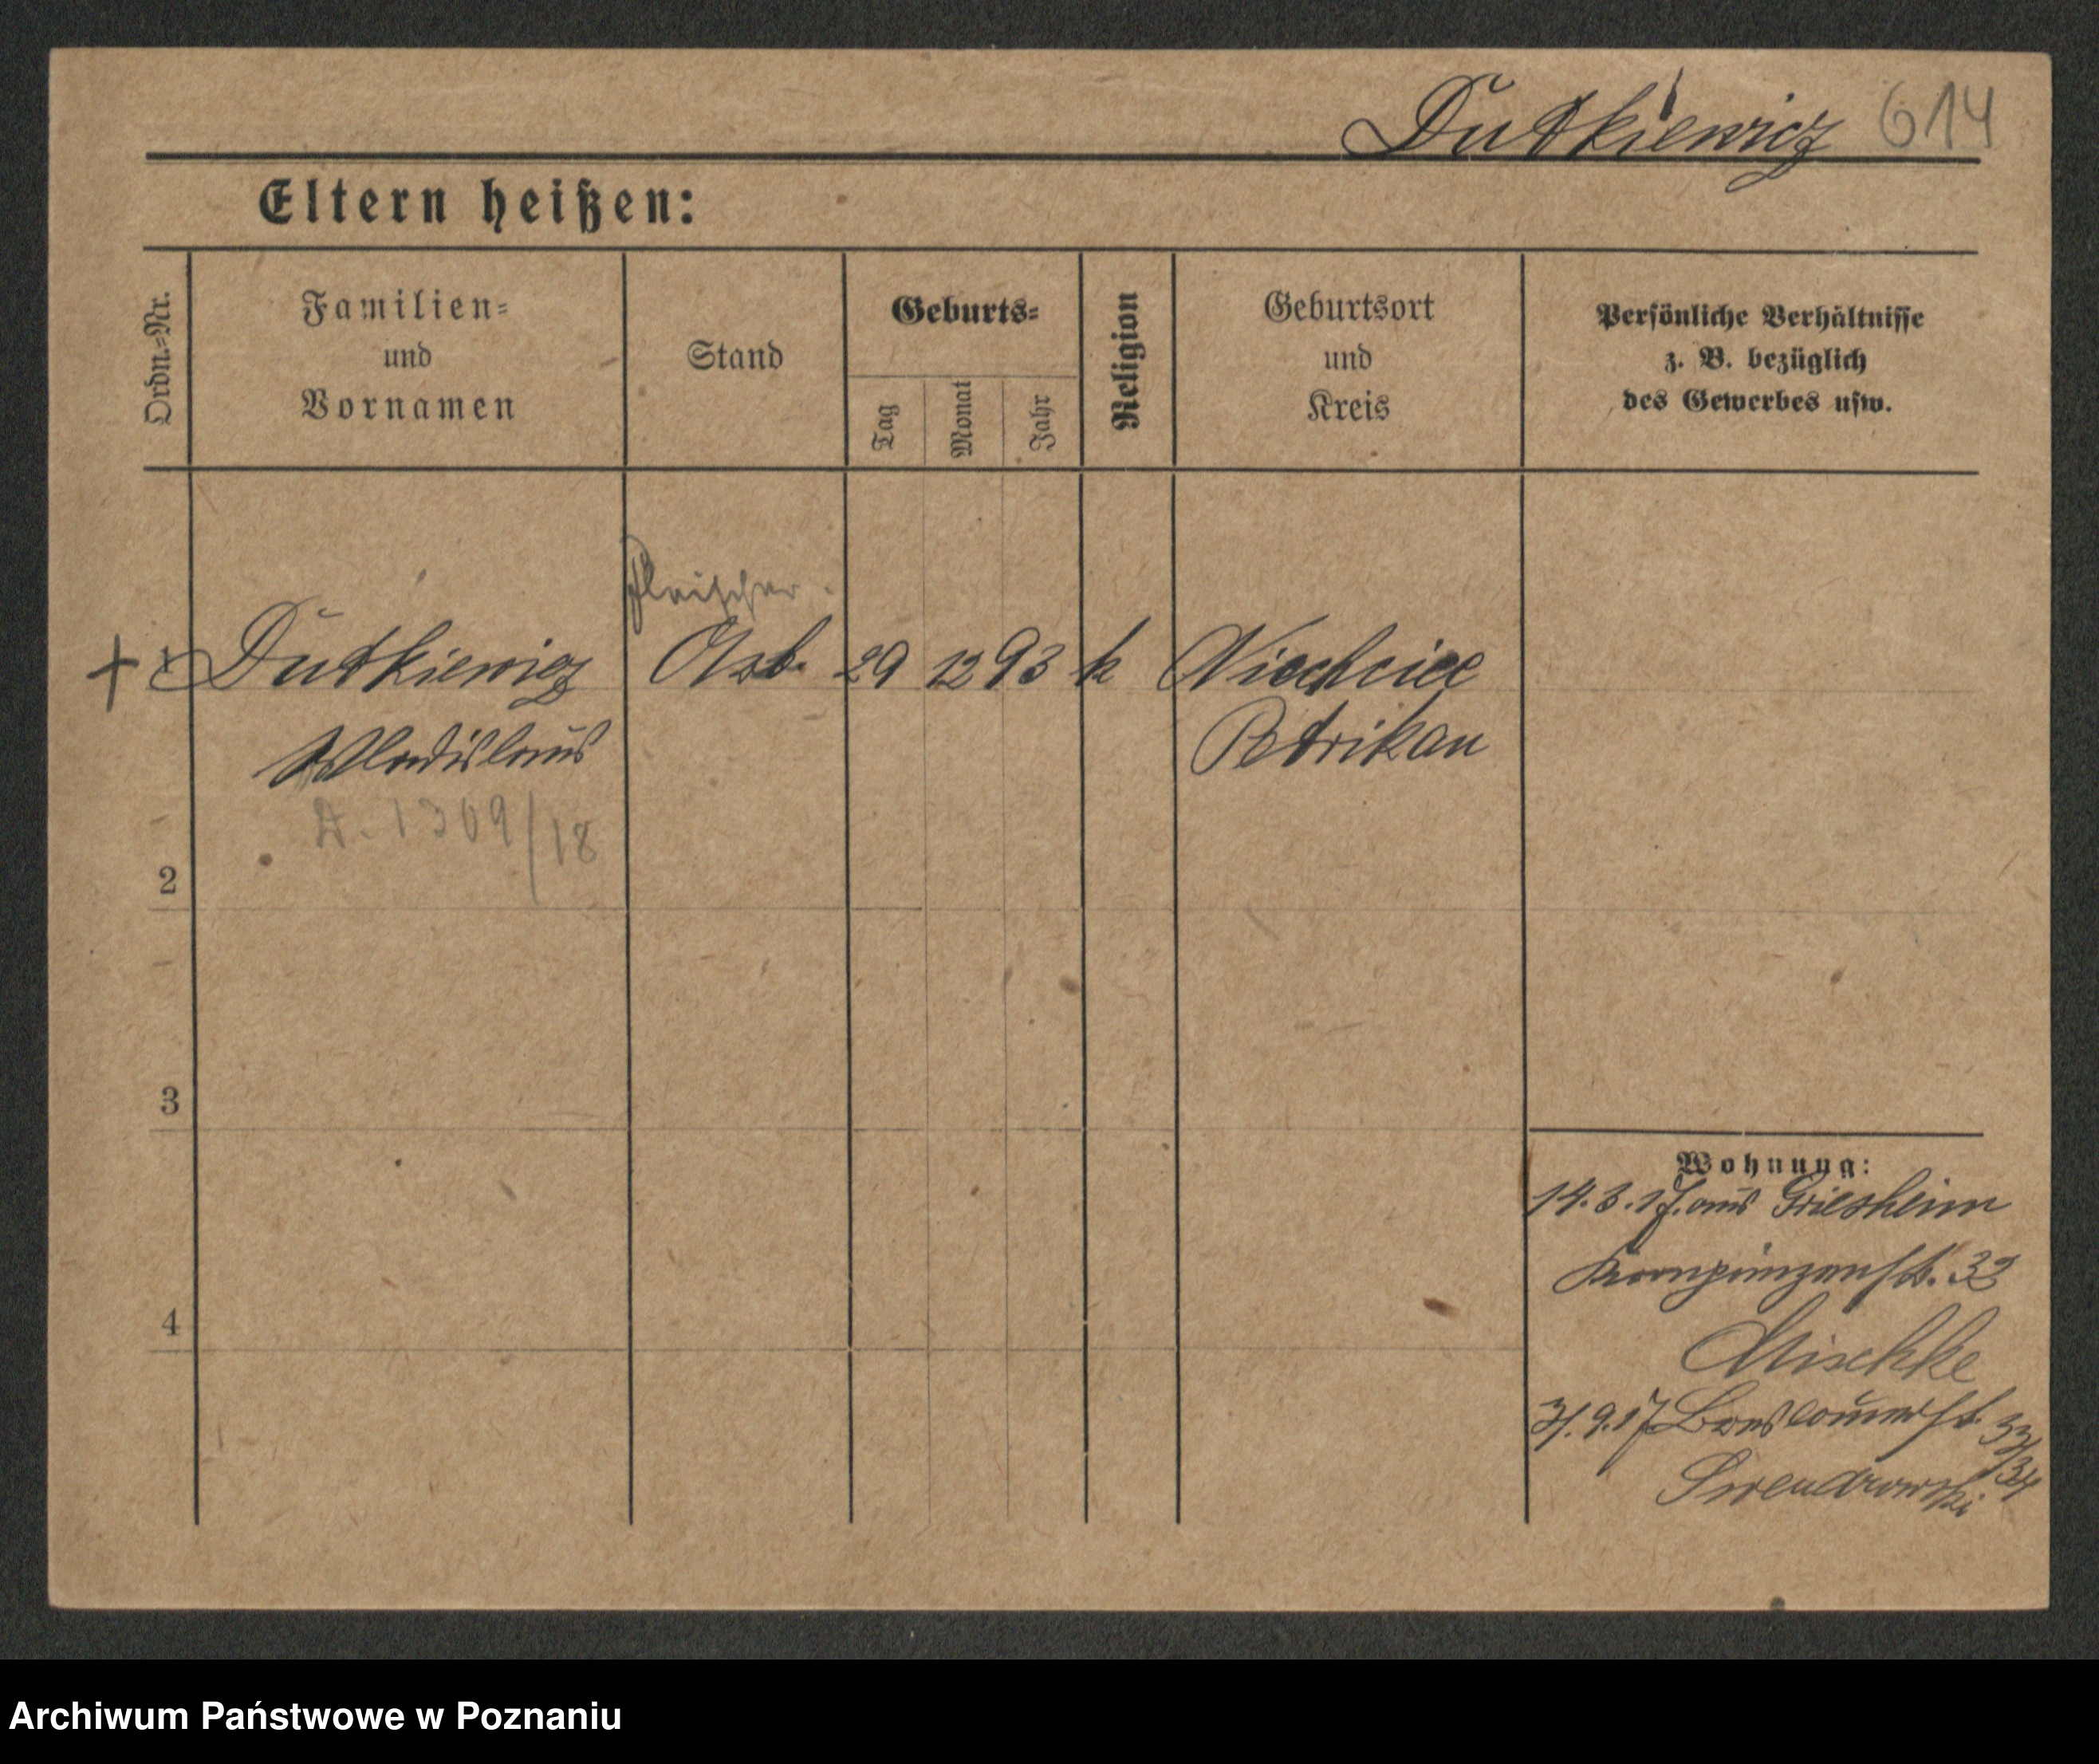 Dutkiewicz 614
Eltern heißen:
Ordn.=Nr.
Familien=
und
Vornamen
Stand
Geburts=
Tag
Monat
Jahr
Religion
Geburtsort
und
Kreis
Persönliche Verhältnisse
z. B. bezüglich
des Gewerbes usw.
Fleischer.
+ 1 Dutkiewicz Arb. 29 12 93 k Niechcice
Wladislaus Petrikau
A. 1309/18
2
3
4
Wohnung:
14.3.17. aus Griesheim
Kronprinzenstr. 32
Mischke
9.17 Breslauerstr. 33/34